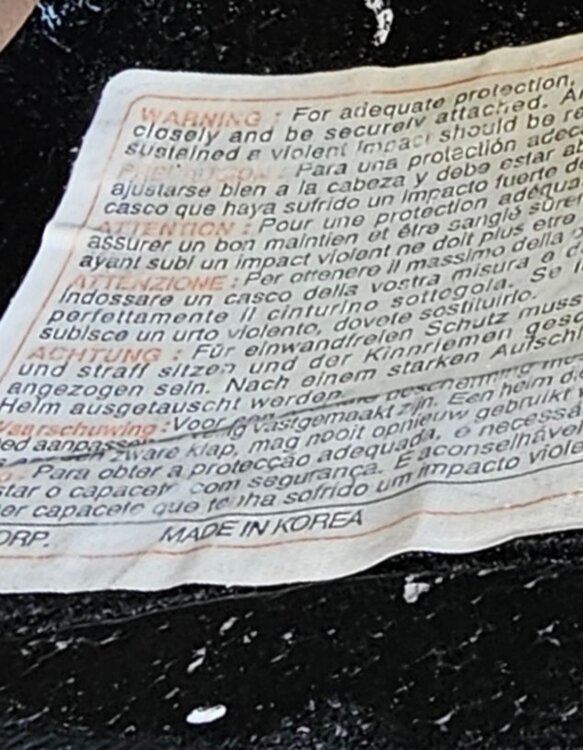 WARNING : For adequate protection,
closely and be securely attached.
sustained a violent impact should be
Para una protección
ajustarse bien a la cabeza y debe estar
casco que haya sufrido un impacto fuerte
ATTENTION : Pour une protection
assurer un bon maintien et être sanglé
ayant subi un impact violent ne doit plus etre
ATTENZIONE : Per ottenere il massimo della
Indossare un casco della vostra misura e
perfettamente il cinturino sottogola. Se
subisce un urto violento, dovete sostituirlo.
ACHTUNG : Für einwandfreien Schutz
und straff sitzen und der Kinnriemen
angezogen sein. Nach einem starken
Helm ausgetauscht werden.
Voor bescherming
vastgemaakt zijn. Een helm
zware klap, mag nooit opnieuw gebruikt
Para obter a protecção adequada, é
o capacete com segurança. E
capacete que tenha sofrido um impacto
MADE IN KOREA